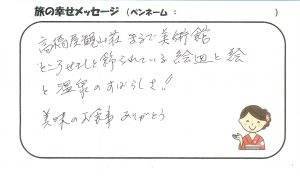 旅の幸せメッセージ（ペンネーム：　　　　　）
高橋屋観山荘 まるで美術館
ところせましと飾られている絵皿と絵
と温泉のすばらしさ!!
美味のお食事 ありがとう